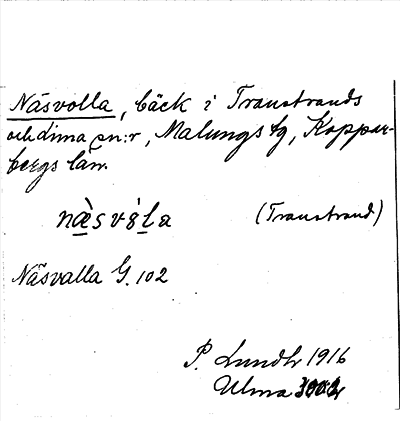 Näsvolla, bäck i Transtrands
och Lima sn:r, Malungs tg, Koppar-
bergs län.
næ̀svòla (Transtrand)
Näsvalla G. 102
P. Lundh 1916
Ulma